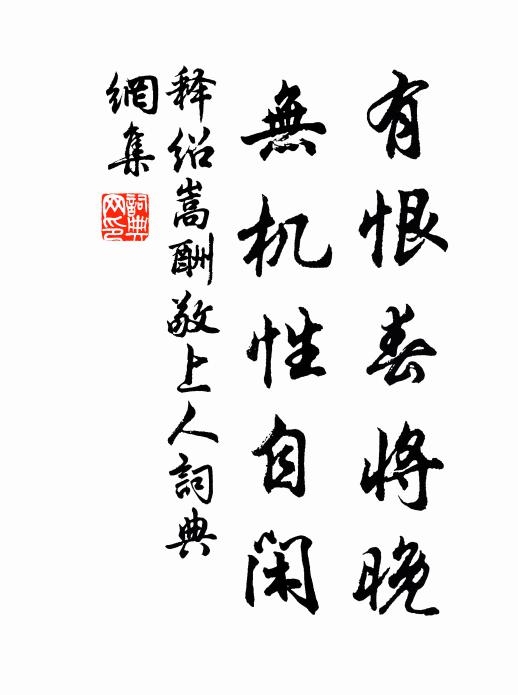 有恨春将晚
無机性自闲
释绍嵩酬敬上人詞典
網集
詞典
网印